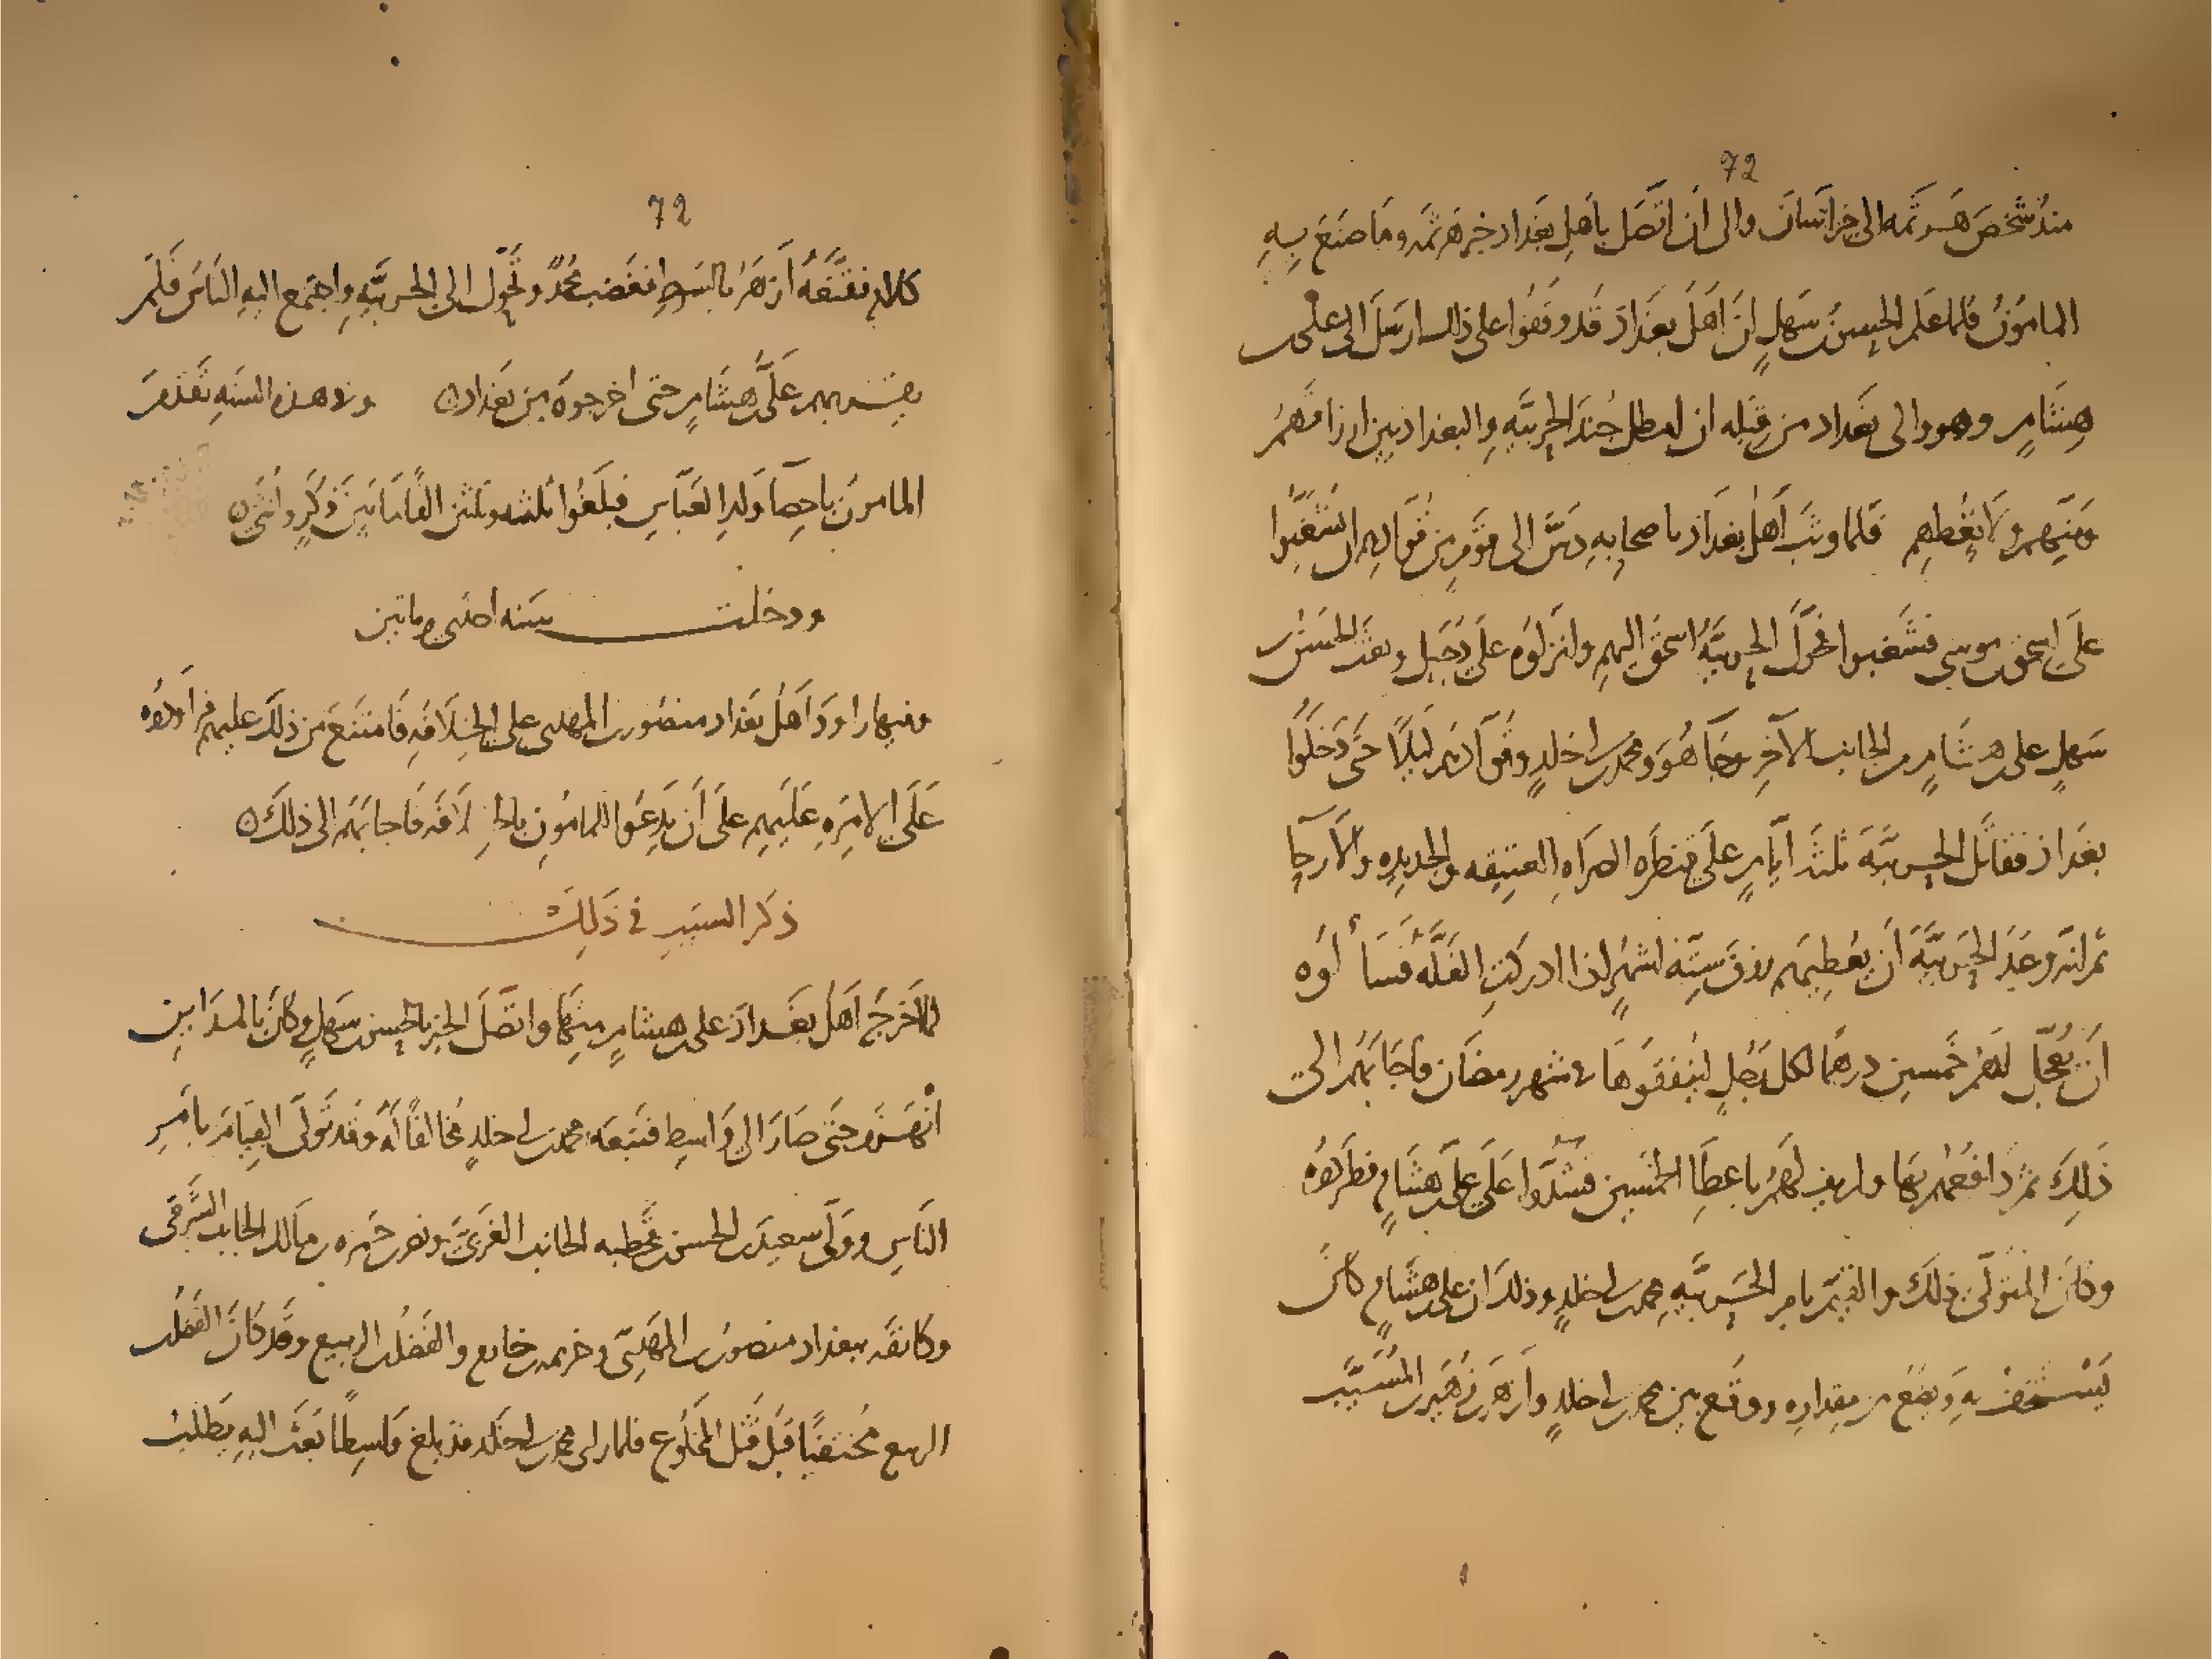 72
منذ شخص هرثمه الى خراسان والى ان اتّصل باهل بغداد خبر هرثمه وما صنع به
المامون فلما علم الحسن بن سهل ان اهل بغداد قد وقفوا على ذلك ارسل الى على بن
هشام وهو والى بغداد من قبله ان امطل جند الحربيّه والبغداديين ارزاقهم
ومنّيهم ولا تعطهم فلما وثب اهل بغداد باصحابه دسّ الى قوم من قوّادهم ان يشغبوا
على اسحق بن موسى فشغبوا فحوّل الحربيّه اسحق اليهم وانزلوه على دجيل وبعث الحسن بن
سهل على بن هشام من الجانب الآخر وجا هو ومحمد بن ابى خلد وقوّادهم ليلا حتى دخلوا
بغداد فقاتل الحربيّه ثلثه ايّام على قنطره الصراه العتيقه والجديده والارحا
ثم انه وعد الحربيّه ان يعطيهم رزق ستّه اشهر اذا ادركت الغلّه فسألوه
ان يعجّل لهم خمسين درهما لكل رجل لينفقوها فى شهر رمضان فاجابهم الى
ذلك ثم دافعهم بها ولم يف لهم باعطا الخمسين فشدّوا على علىّ بن هشام فطردوه
وكان المتولّى ذلك والقيّم بامر الحربيّه محمد بن ابى خلد وذلك ان على بن هشام كان
يستخف به ويضع من مقداره ووقع بين محمد بن ابى خلد وازهر بن زهير بن المسيّب
72
كلام فقنّعه ازهر بالسوط فغضب محمد وتحوّل الى الحربيّه واجتمع اليه الناس فلم
يقم بهم علىّ بن هشام حتى اخرجوه من بغداد ه وفى هذه السنه تقدّم
المامون باحصا ولد العبّاس فبلغوا ثلثه وثلثين الفا ما بين ذكر وانثى ه
ودخلت سنه احدى ومائتين
وفيها راود اهل بغداد منصور بن المهدى على الخلافه فامتنع من ذلك عليهم فراودوه
على الامره عليهم على ان يدعوا للمامون بالخلافه فاجابهم الى ذلك ه
ذكر السبب فى ذلك
لما خرج اهل بغداد على بن هشام منها واتّصل الخبر بالحسن بن سهل وكان بالمداين
انهزم حتى صار الى واسط فتبعه محمد بن ابى خلد مخالفا له وقد تولّى القيام بامر
الناس وولّى سعيد بن الحسن بن قحطبه الجانب الغربىّ ونصر بن حمزه بن مالك الجانب الشرقى
وكانفه ببغداد منصور بن المهدىّ وخزيمه بن خازم والفضل بن الربيع وقد كان الفضل بن
الربيع مختفيا قبل قتل المخلوع فلما راى محمد بن ابى خلد قد بلغ واسطا بعث اليه يطلب